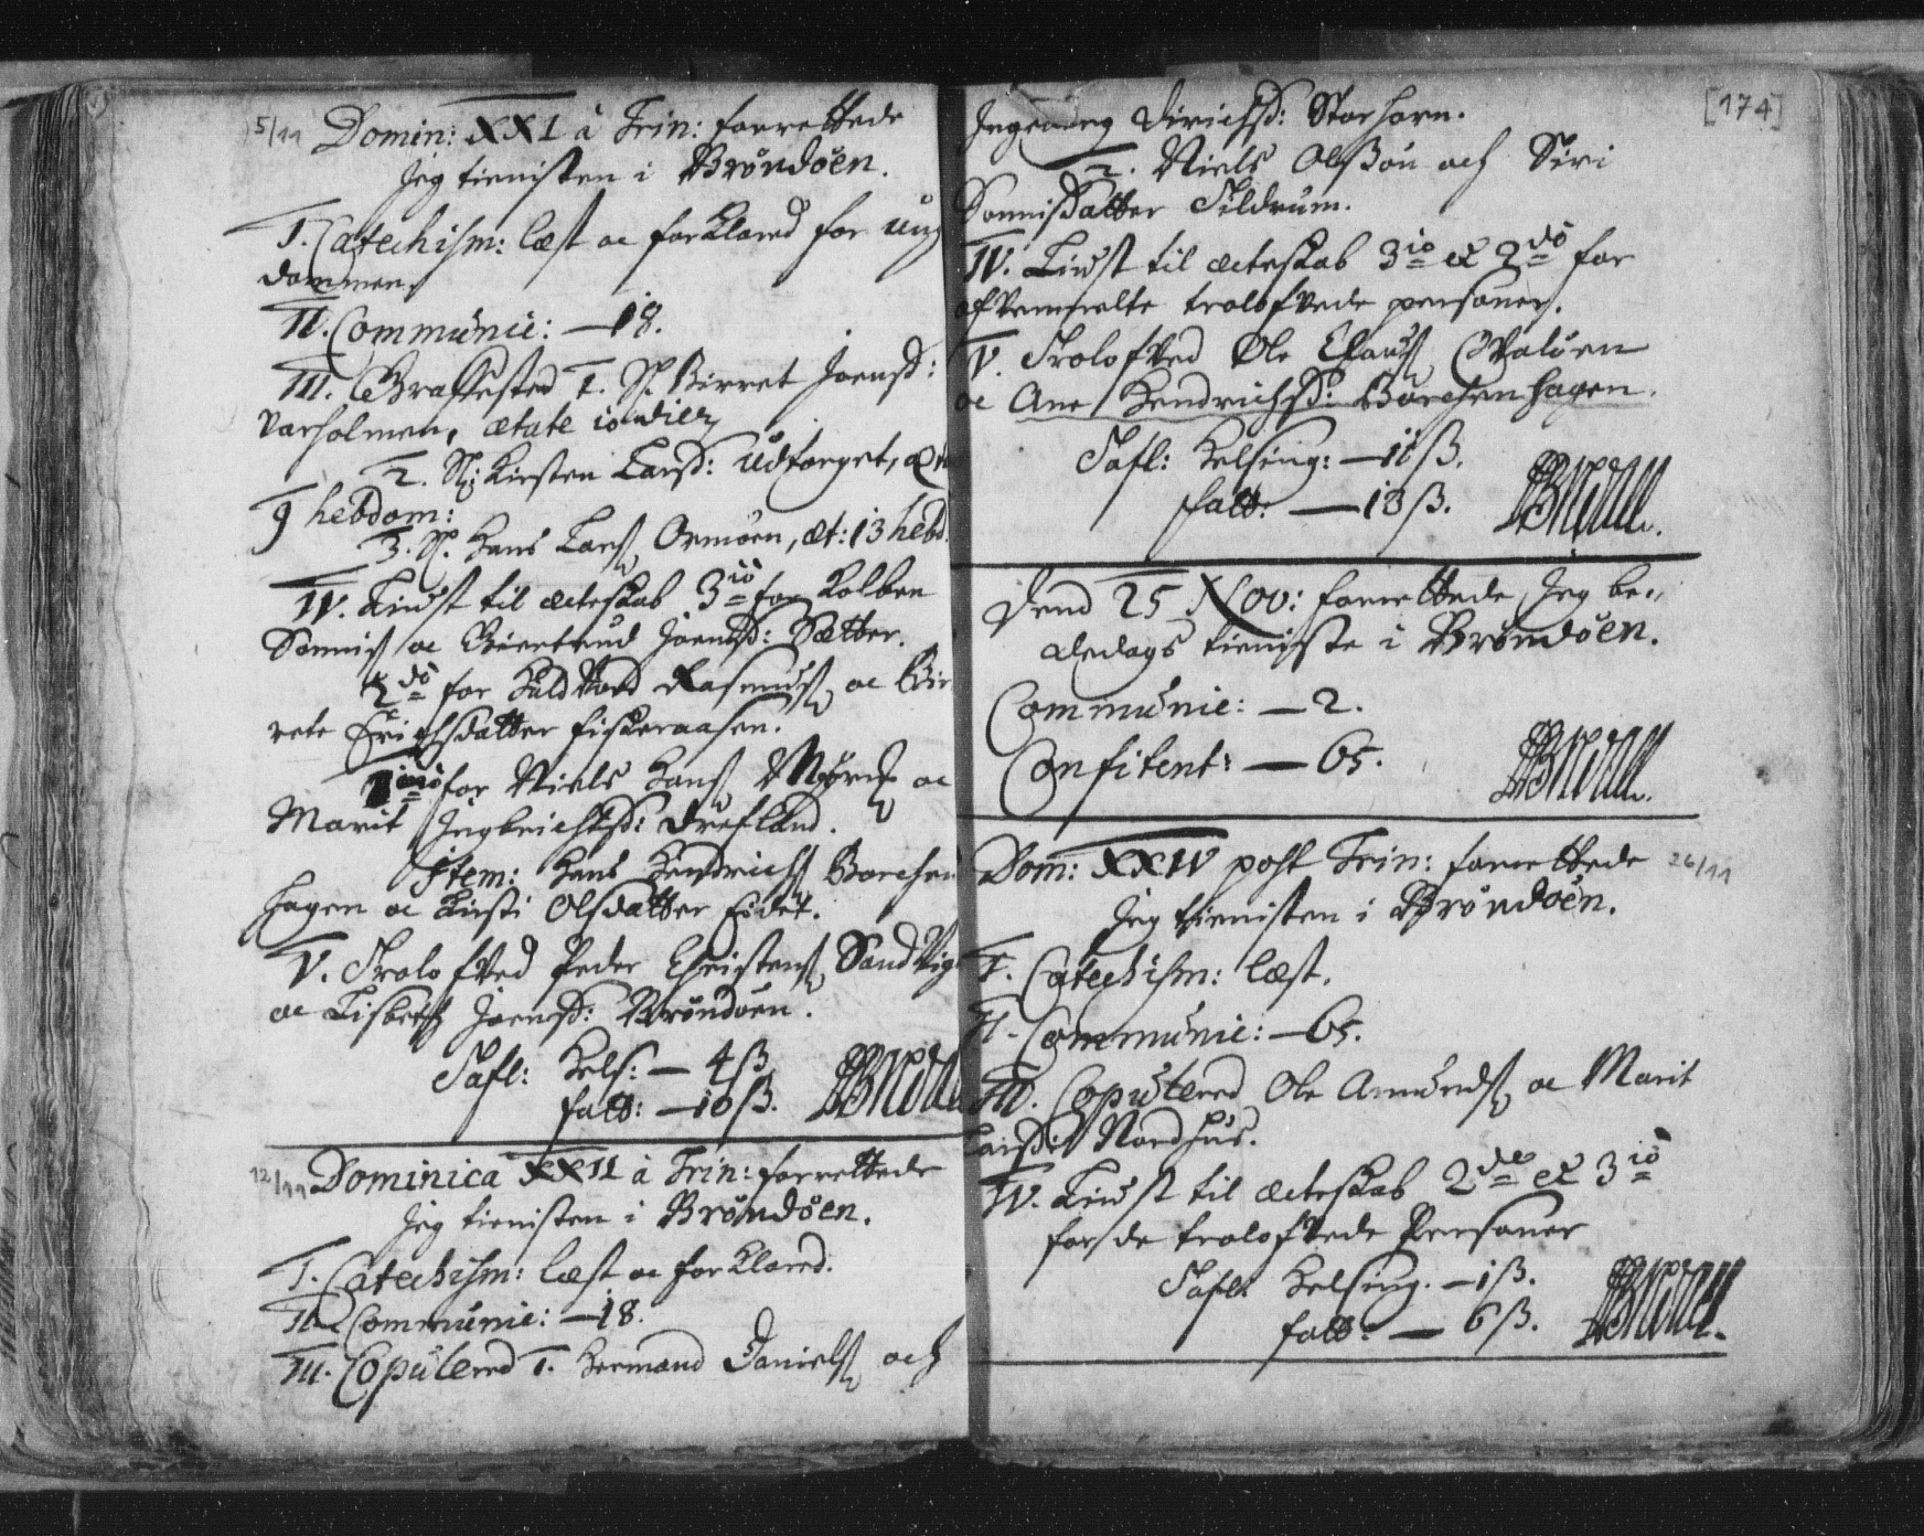 5/11 Domin: XXI à Trin: forrettede
Jeg tienisten i Brøndøen.
I. Catechism: læst oc forklared for ung
dommen.
II. Communic: — 18.
III. Graffested 1. Sl. Birret Joensd:
Varholmen, ætate 10 dier.
2. Sl: Kirsten Larsd: Udtorget, æt
9 hebdom:
3. Sl. Hans Lars. Ormøen, æt: 13 hebd.
IV. Liust til ecteskab 3io for Kolben
Sonnis. oc Giertrud Joensd: Sætter.
2do for Haldvord Rasmus. oc Bir
rete Erichsdatter fiskeraasen.
1mo for Niels Hans. oc
Marit Ingbrichtsd: Drefland.
Item: Hans Hendrichs. Borchen
hagen oc Kirsti Olsdatter Eidet.
V. Trolofved Peder Christens. Sandvig
oc Lisbeth Joensd: Brøndøen.
Tafl: Hels: — 4 ß.
fatt: — 10 ß.
12/11 Dominica XXII à Trin: forrettede
Jeg tienisten i Brøndøen.
I. Catechism: læst oc forklared.
II. Communic: — 18.
III. Copulered 1. Hermand Daniels. och
[174]
Ingeborg Dirichsd: Storhorn.
2. Niels Olsøn och Siri
Sonnisdatter Tildrum.
IV. Liust til ecteskab 3io et 2do for
ofvenmelte trolofvede personer.
V. Trolofved Ole Claus. Hvaløen
oc Ane Hendrichsd: Borchenhagen.
Tafl: Helsing: — 11 ß.
fatt: — 13 ß.
Dend 25 Nov: forrettede Jeg be-
dedags tieniste i Brøndøen.
Communic: — 2.
Confitent: — 65.
Dom: XXIV post Trin: forrettede 26/11
Jeg tienisten i Brøndøen.
I. Catechism: læst.
II. Communic: — 65.
III. Copulered Ole Amunds. oc Marit
Larsd: Nordhus.
IV. Liust til ecteskab 2do et 3io
for de trolofvede Personer
Tafl: Helsing. — 1 ß.
fatt: — 6 ß.